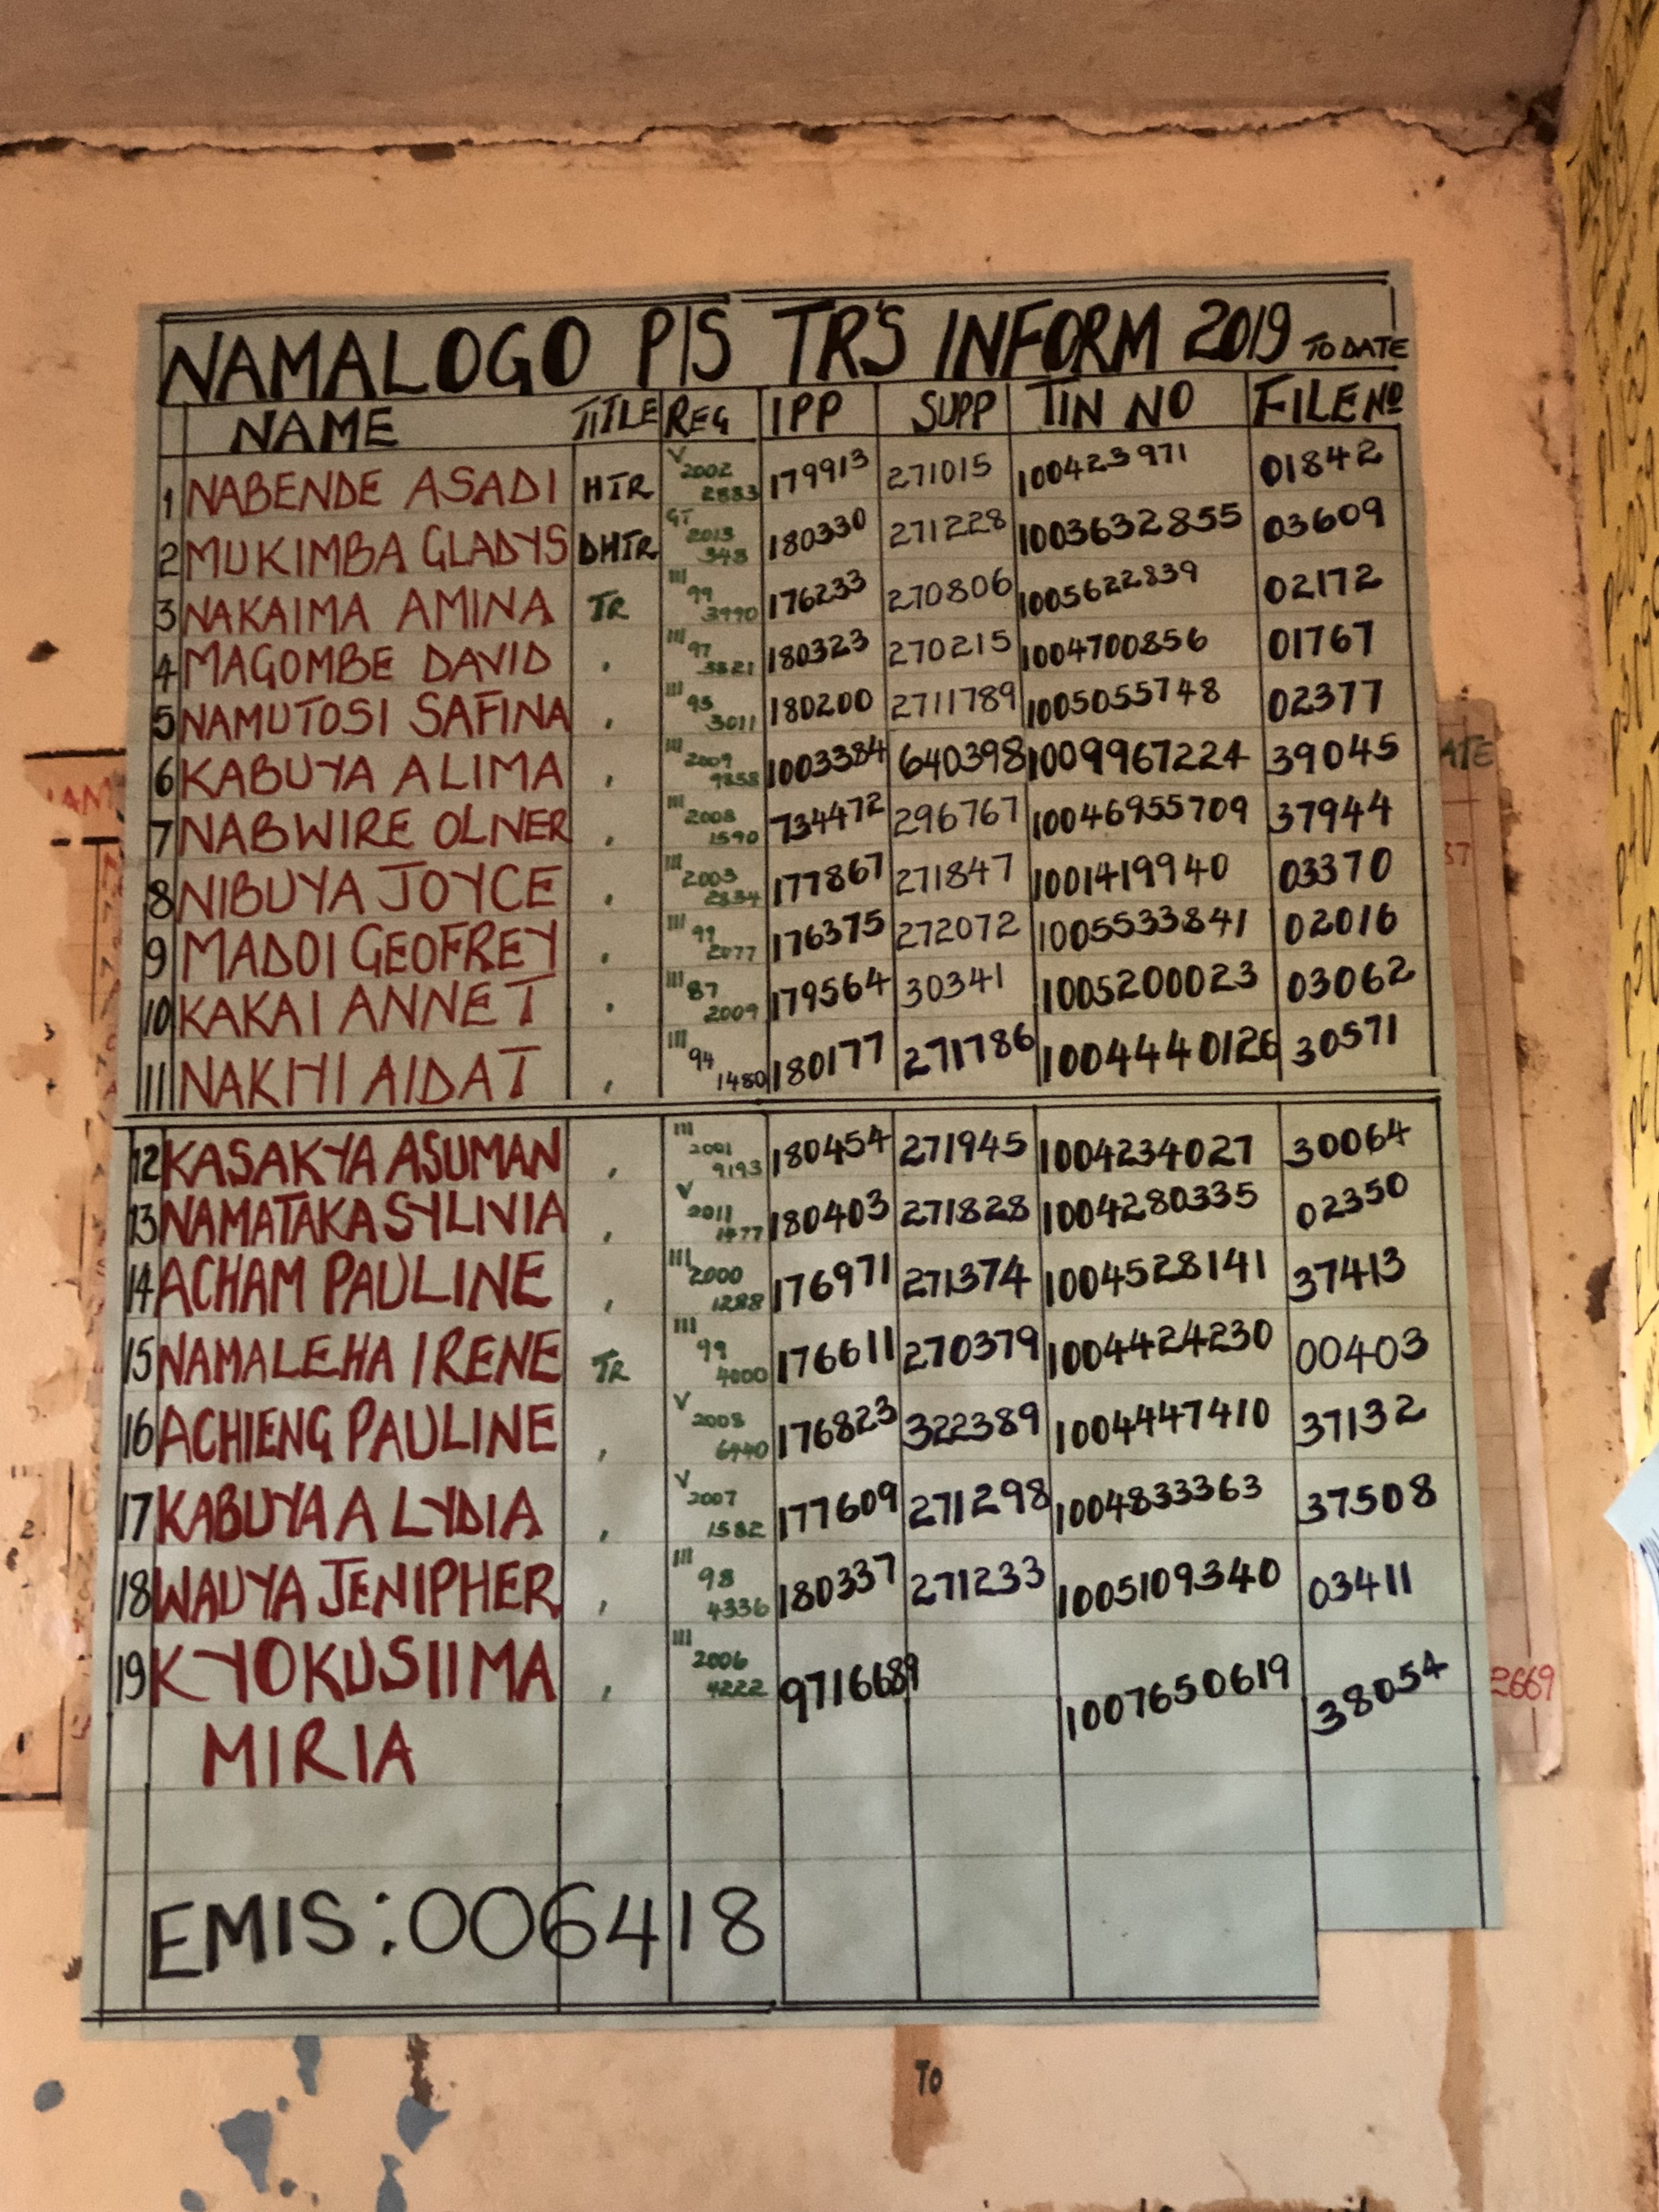 NAMALOGO P/S TR'S INFORM 2019 TO DATE
NAME TITLE REG IPP SUPP TIN NO FILE NO
1 NABENDE ASADI HTR V 2002 2883 179913 271015 100423971 01842
2 MUKIMBA GLADYS DHTR GT 2013 343 180330 271228 1003632855 03609
3 NAKAIMA AMINA TR III 99 3990 176233 270806 1005622839 02172
4 MAGOMBE DAVID , III 97 3821 180323 270215 1004700856 01767
5 NAMUTOSI SAFINA , III 95 3011 180200 2711789 1005055748 02377
6 KABUYA ALIMA , III 2009 9858 1003384 640398 1009967224 39045
7 NABWIRE OLNER , III 2008 1590 734472 296767 10046955709 37944
8 NIBUYA JOYCE , III 2003 2834 177867 271847 1001419940 03370
9 MADOI GEOFREY , III 99 2077 176375 272072 1005533841 02016
10 KAKAI ANNET , III 87 2009 179564 30341 1005200023 03062
11 NAKHI AIDAT , III 94 1480 180177 271786 1004440126 30571
12 KASAKYA ASUMAN , III 2001 9193 180454 271945 1004234027 30064
13 NAMATAKA SYLIVIA , V 2011 1477 180403 271828 1004280335 02350
14 ACHAM PAULINE , III 2000 1288 176971 271374 1004528141 37413
15 NAMALEHA IRENE TR III 99 4000 176611 270379 1004424230 00403
16 ACHIENG PAULINE , V 2008 6940 176823 322389 1004447410 37132
17 KABUYA A LYDIA , V 2007 1582 177609 271298 1004833363 37508
18 WAUYA JENIPHER , III 98 4336 180337 271233 1005109340 03411
19 KYOKUSIIMA , III 2006 4222 9716689 1007650619 38054
MIRIA
EMIS:006418
2669
TO